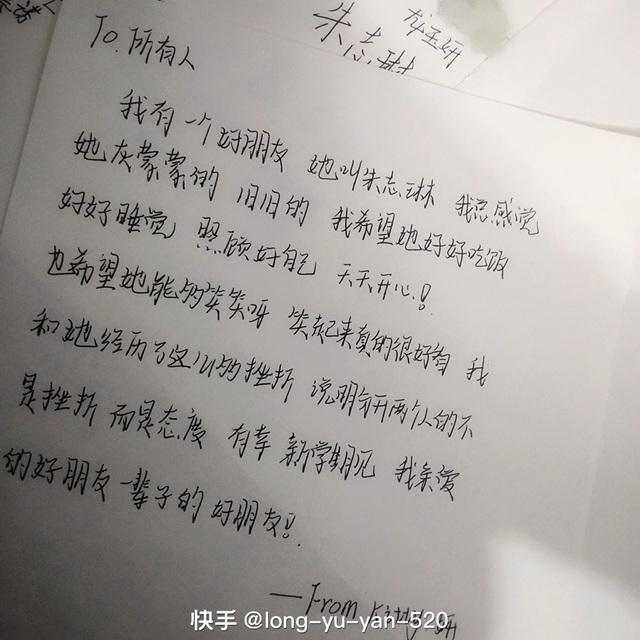 朱志琳
龙玉妍
To.所有人
我有一个好朋友 她叫朱志琳 我总感觉
她灰蒙蒙的 旧旧的 我希望她好好吃饭
好好睡觉 照顾好自己 天天开心!
也希望她能多笑笑呀 笑起来真的很好看 我
和她经历了这么多的挫折 说明分开两个人的不
是挫折 而是态度 有幸 新学期见 我亲爱
的好朋友 一辈子的 好朋友!
—From
快手 @long-yu-yan-520